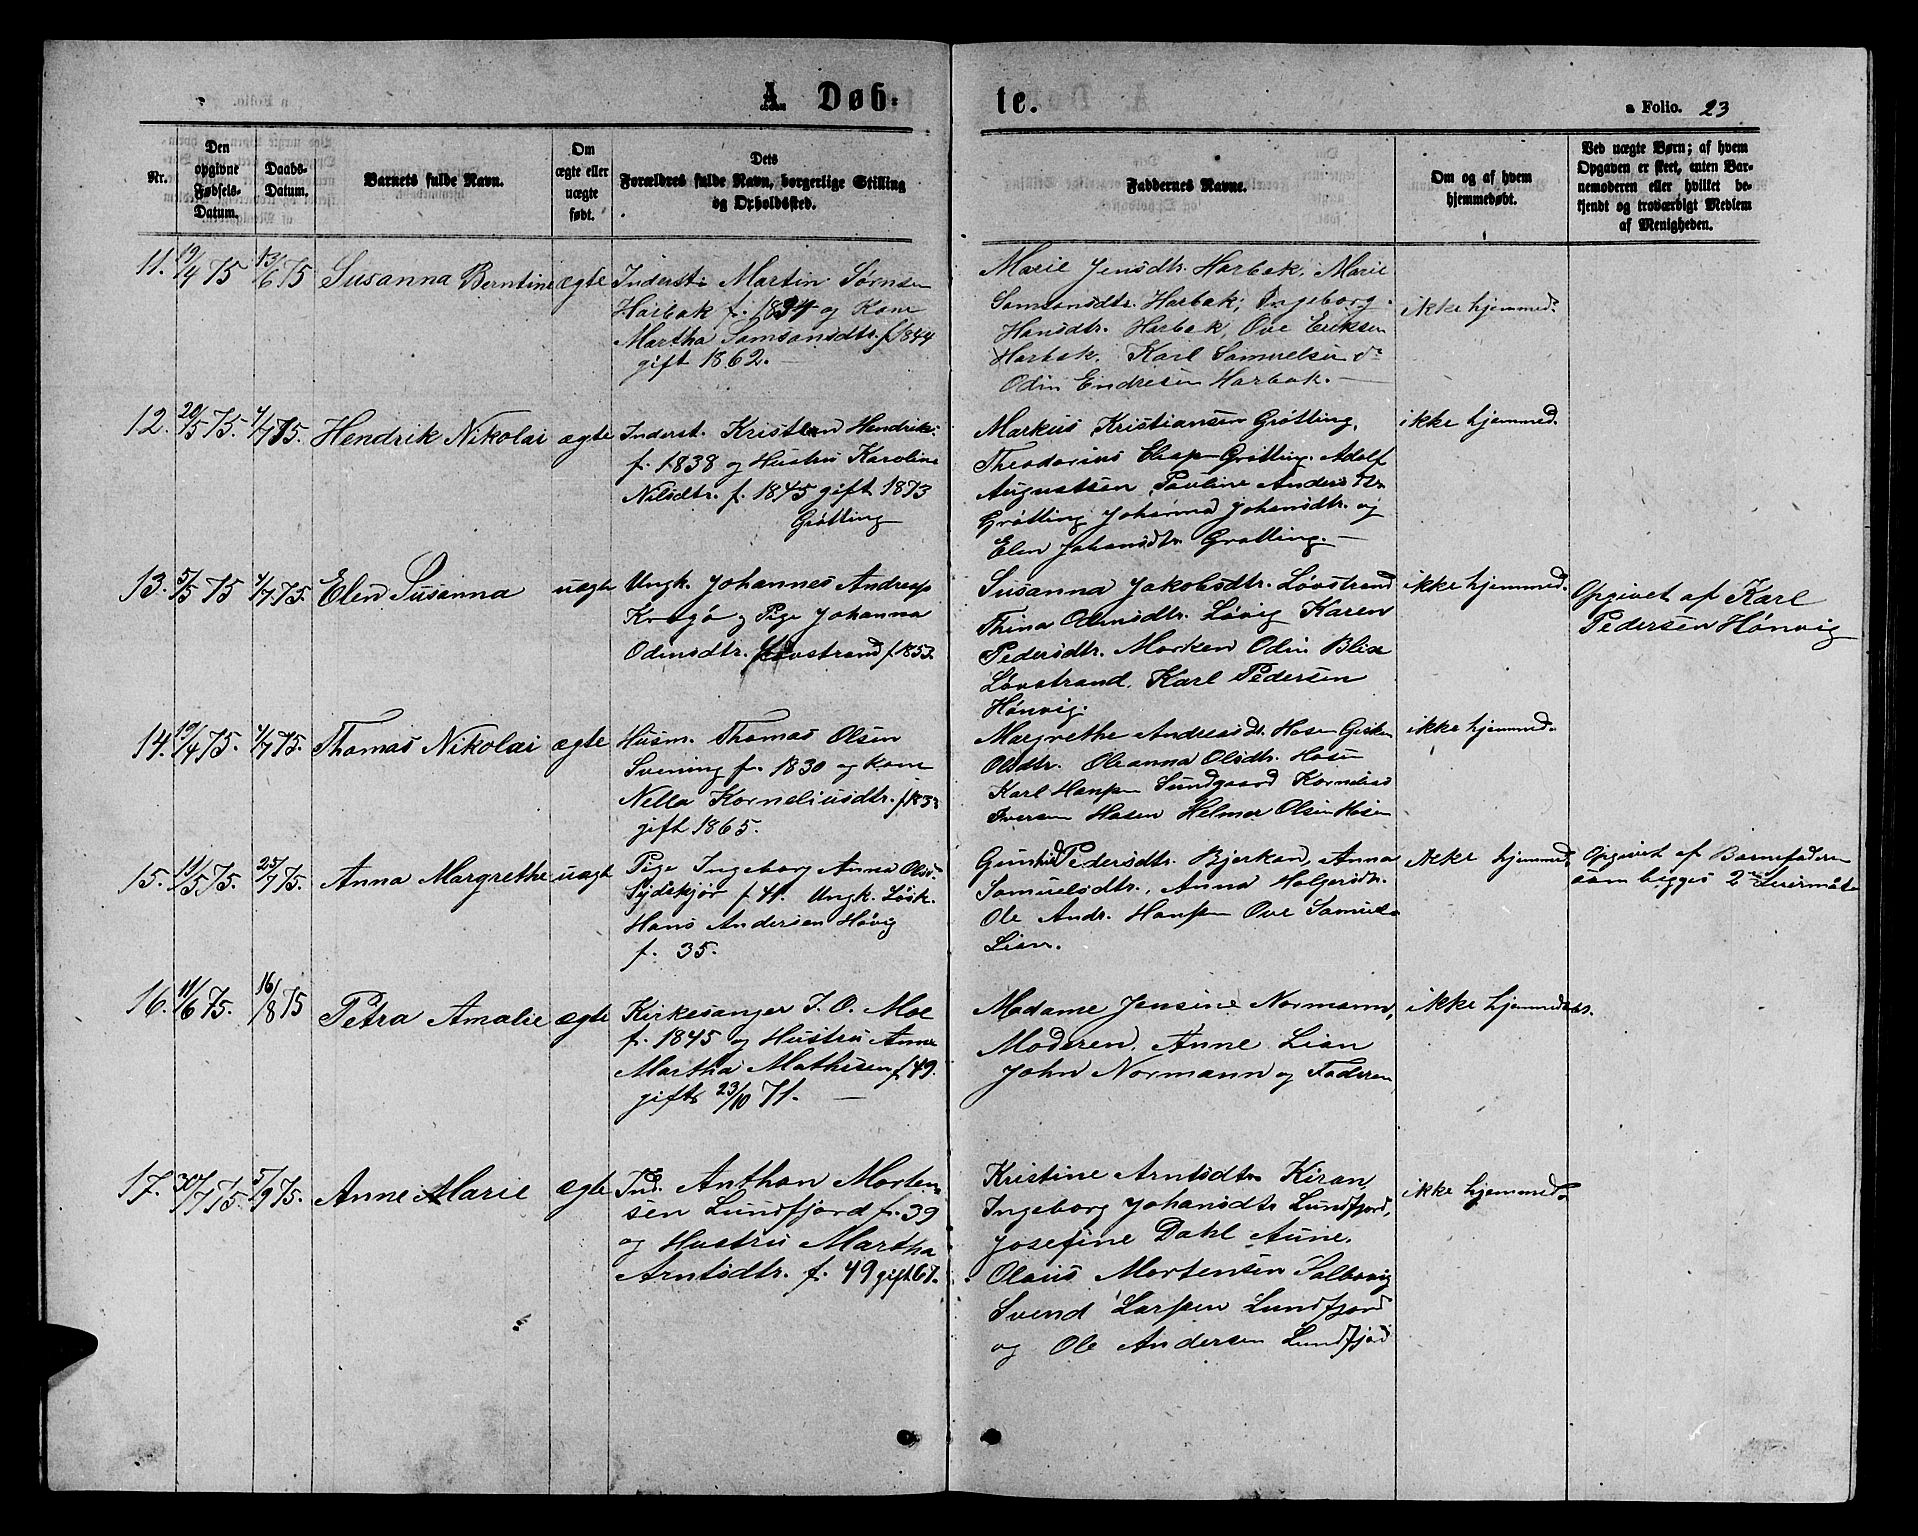 A. Døb-
te.
a Folio. 23
Nr.
Den opgivne Fødsels-Datum.
Daabs-Datum.
Barnets fulde Navn.
Om ægte eller uægte født.
Dets Forældres fulde Navn, borgerlige Stilling og Opholdssted.
Faddernes Navne.
Om og af hvem hjemmedøbt.
Ved uægte Børn; af hvem Opgaven er skeet, enten Barnemoderen eller hvilket bekjendt og troværdigt Medlem af Menigheden.
11. 19/4 75 13/6 75 Susanna Berntine ægte
Inderst Martin Sørnsen
Harbak f. 1834 og Kone
Martha Samsonsdtr. f 1844
gift 1862.
Marie Jensdtr. Harbak, Marie
Samsonsdtr. Harbak, Ingeborg
Hansdtr. Harbak, Ove Eriksen
Harbak. Karl Samuelsen do
Odin Endresen Harbak. —
ikke hjemmed.
12. 20/5 75. 4/7 75. Hendrik Nikolai ægte
Inderst. Kristen Hendriks.
f. 1838 og Hustru Karoline
Nilsdtr. f. 1845 gift 1873
Grøtting
Markus Kristiansen Grøtting,
Theodorius Grøtting. Adolf
Augustsen, Pauline Andersdtr
Grøtting Johanna Johansdtr. og
Elen Johansdtr Grøtting. —
ikke hjemmed.
13. 5/5 75 4/7 75. Elen Susanna uægte
Ungk. Johannes Andreas
Kragø og Pige Johanna
Odinsdtr. Løvstrand f. 1853.
Susanna Jakobsdtr. Løvstrand
Thina Odinsdtr. Løvig Karen
Pedersdtr. Morken Odin Blix
Løvstrand. Karl Pedersen
Hønvig.
ikke hjemmed.
Opgivet af Karl
Pedersen Hønvig
14. 19/4 75. 4/7 75. Thomas Nikolai ægte
Husm. Thomas Olsen
Svening f. 1830 og Kone
Nella Korneliusdtr. f. 183
gift 1865.
Margrethe Andreasdt. Hosen
Olsdtr. Oleanna Olsdtr. Hosen
Karl Hansen Sundgaard Kornelius
Iversen Hosen Helmer Olsen Hosen
ikke hjemmed.
15. 11/5 75. 25/7 75. Anna Margrethe uægt
Pige Ingeborg Anna Olsd.
Sydskjør f. 41. Ungk. Løsk.
Hans Andersen Høvig
f. 35.
Gunhild Pedersdtr. Bjerkan, Anna
Samuelsdtr., Anna Holgersdtr.
Ole Andr. Hansen Ove Samuels
Lian.
ikke hjemmed.
Opgivet af Barnefaderen
som begges 2det Leiermaal
16. 11/6 75. 16/8 75 Petra Amalie ægte
Kirkesanger J. O. Moe
f. 1845 og Hustru Anne
Martha Mathisen f 49.
gift 23/10 71. —
Madame Jensine Normann,
Moderen, Anne Lian
John Normann og Faderen
ikke hjemmedøbt.
17. 30/7 75. 5/9 75. Anne Marie ægte
Ind. Anthon Morten-
sen Lundfjord f. 39
og Hustru Martha
Arntsdtr. f. 49 gift 67.
Kristine Arntsdtr Kiran,
Ingeborg Johansdtr Lundfjord,
Josefine Dahl Aune.
Olaus Mortensen Salbovig
Svend Larsen Lundfjord
og Ole Andersen Lundfjord
ikke hjemmed.